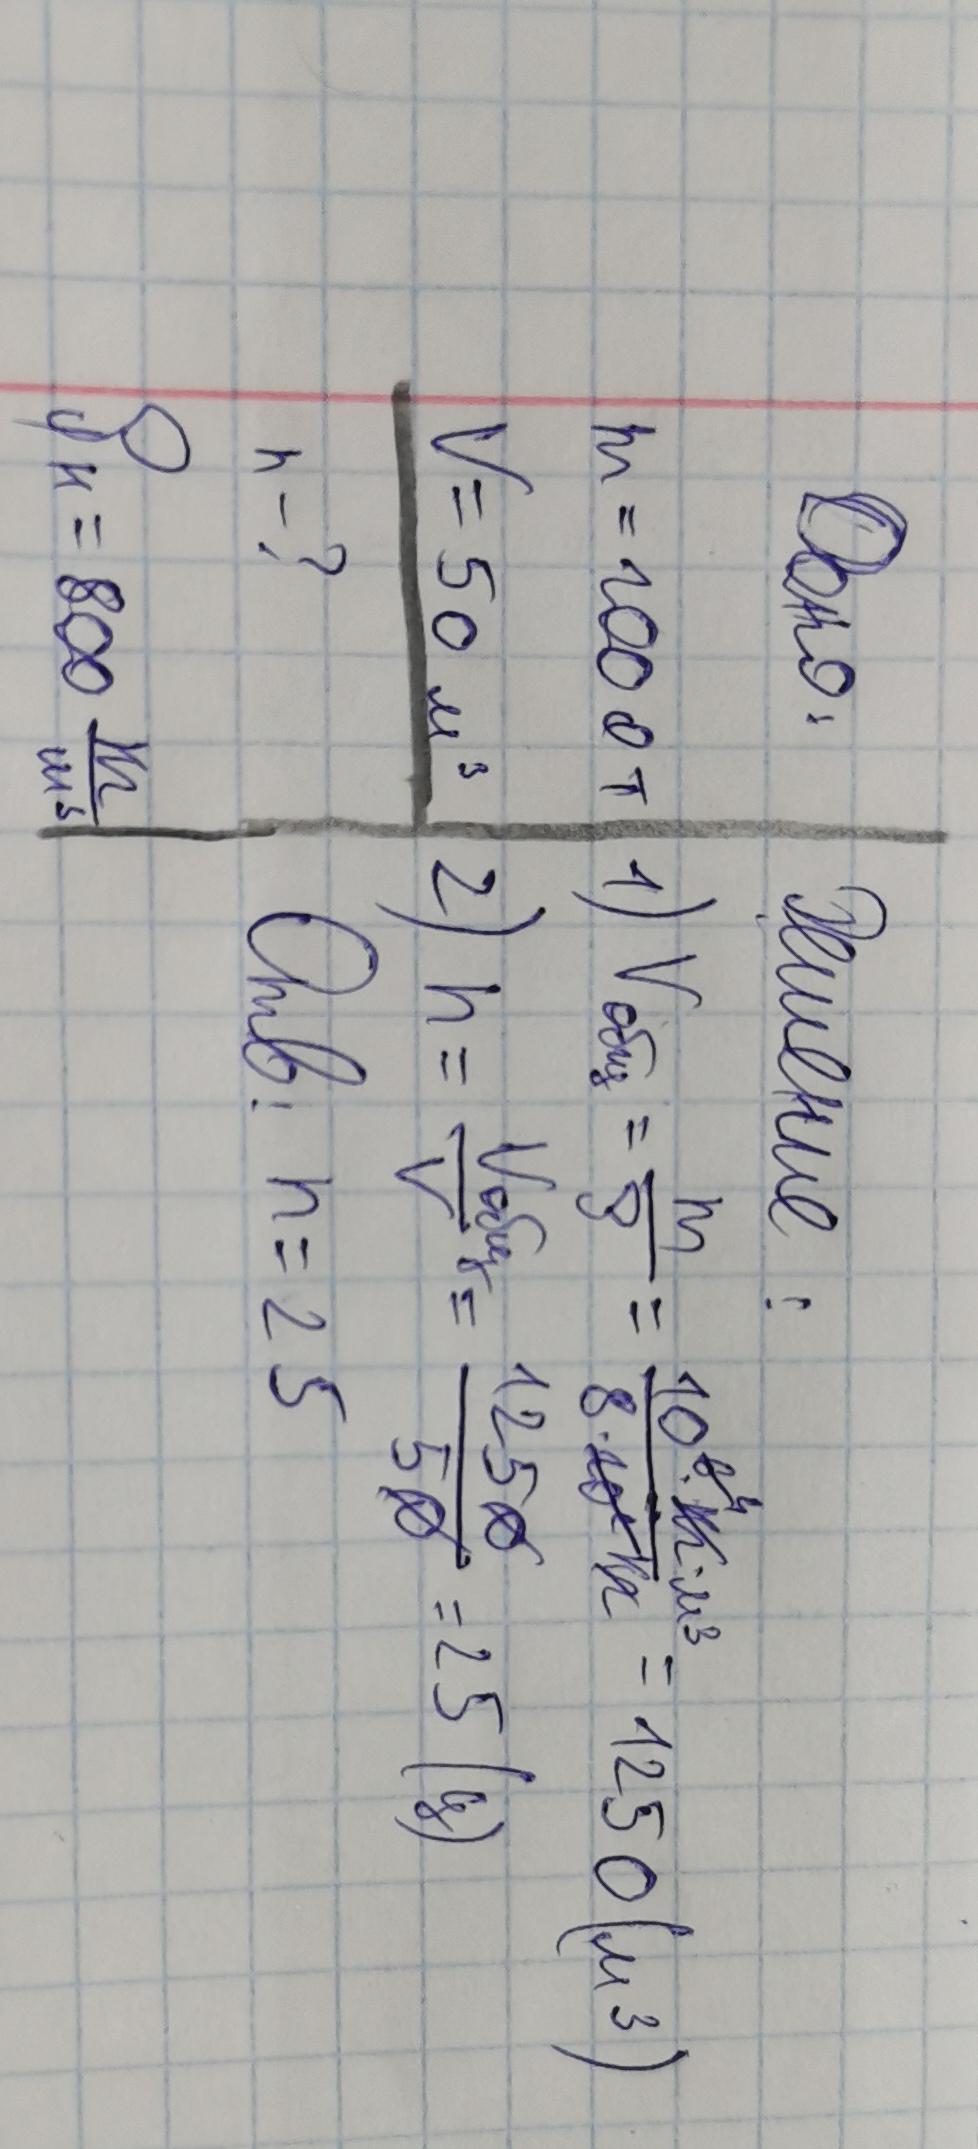 Дано:
m = 1000 т
V = 50 м³
n - ?
ρн = 800 кг/м³
Решение:
1) Vобщ = m/ρ = 10⁶⁴·кг·м³/8·10²кг = 1250 (м³)
2) n = Vобщ/V = 1250/50 = 25 (ц)
Отв: n = 25